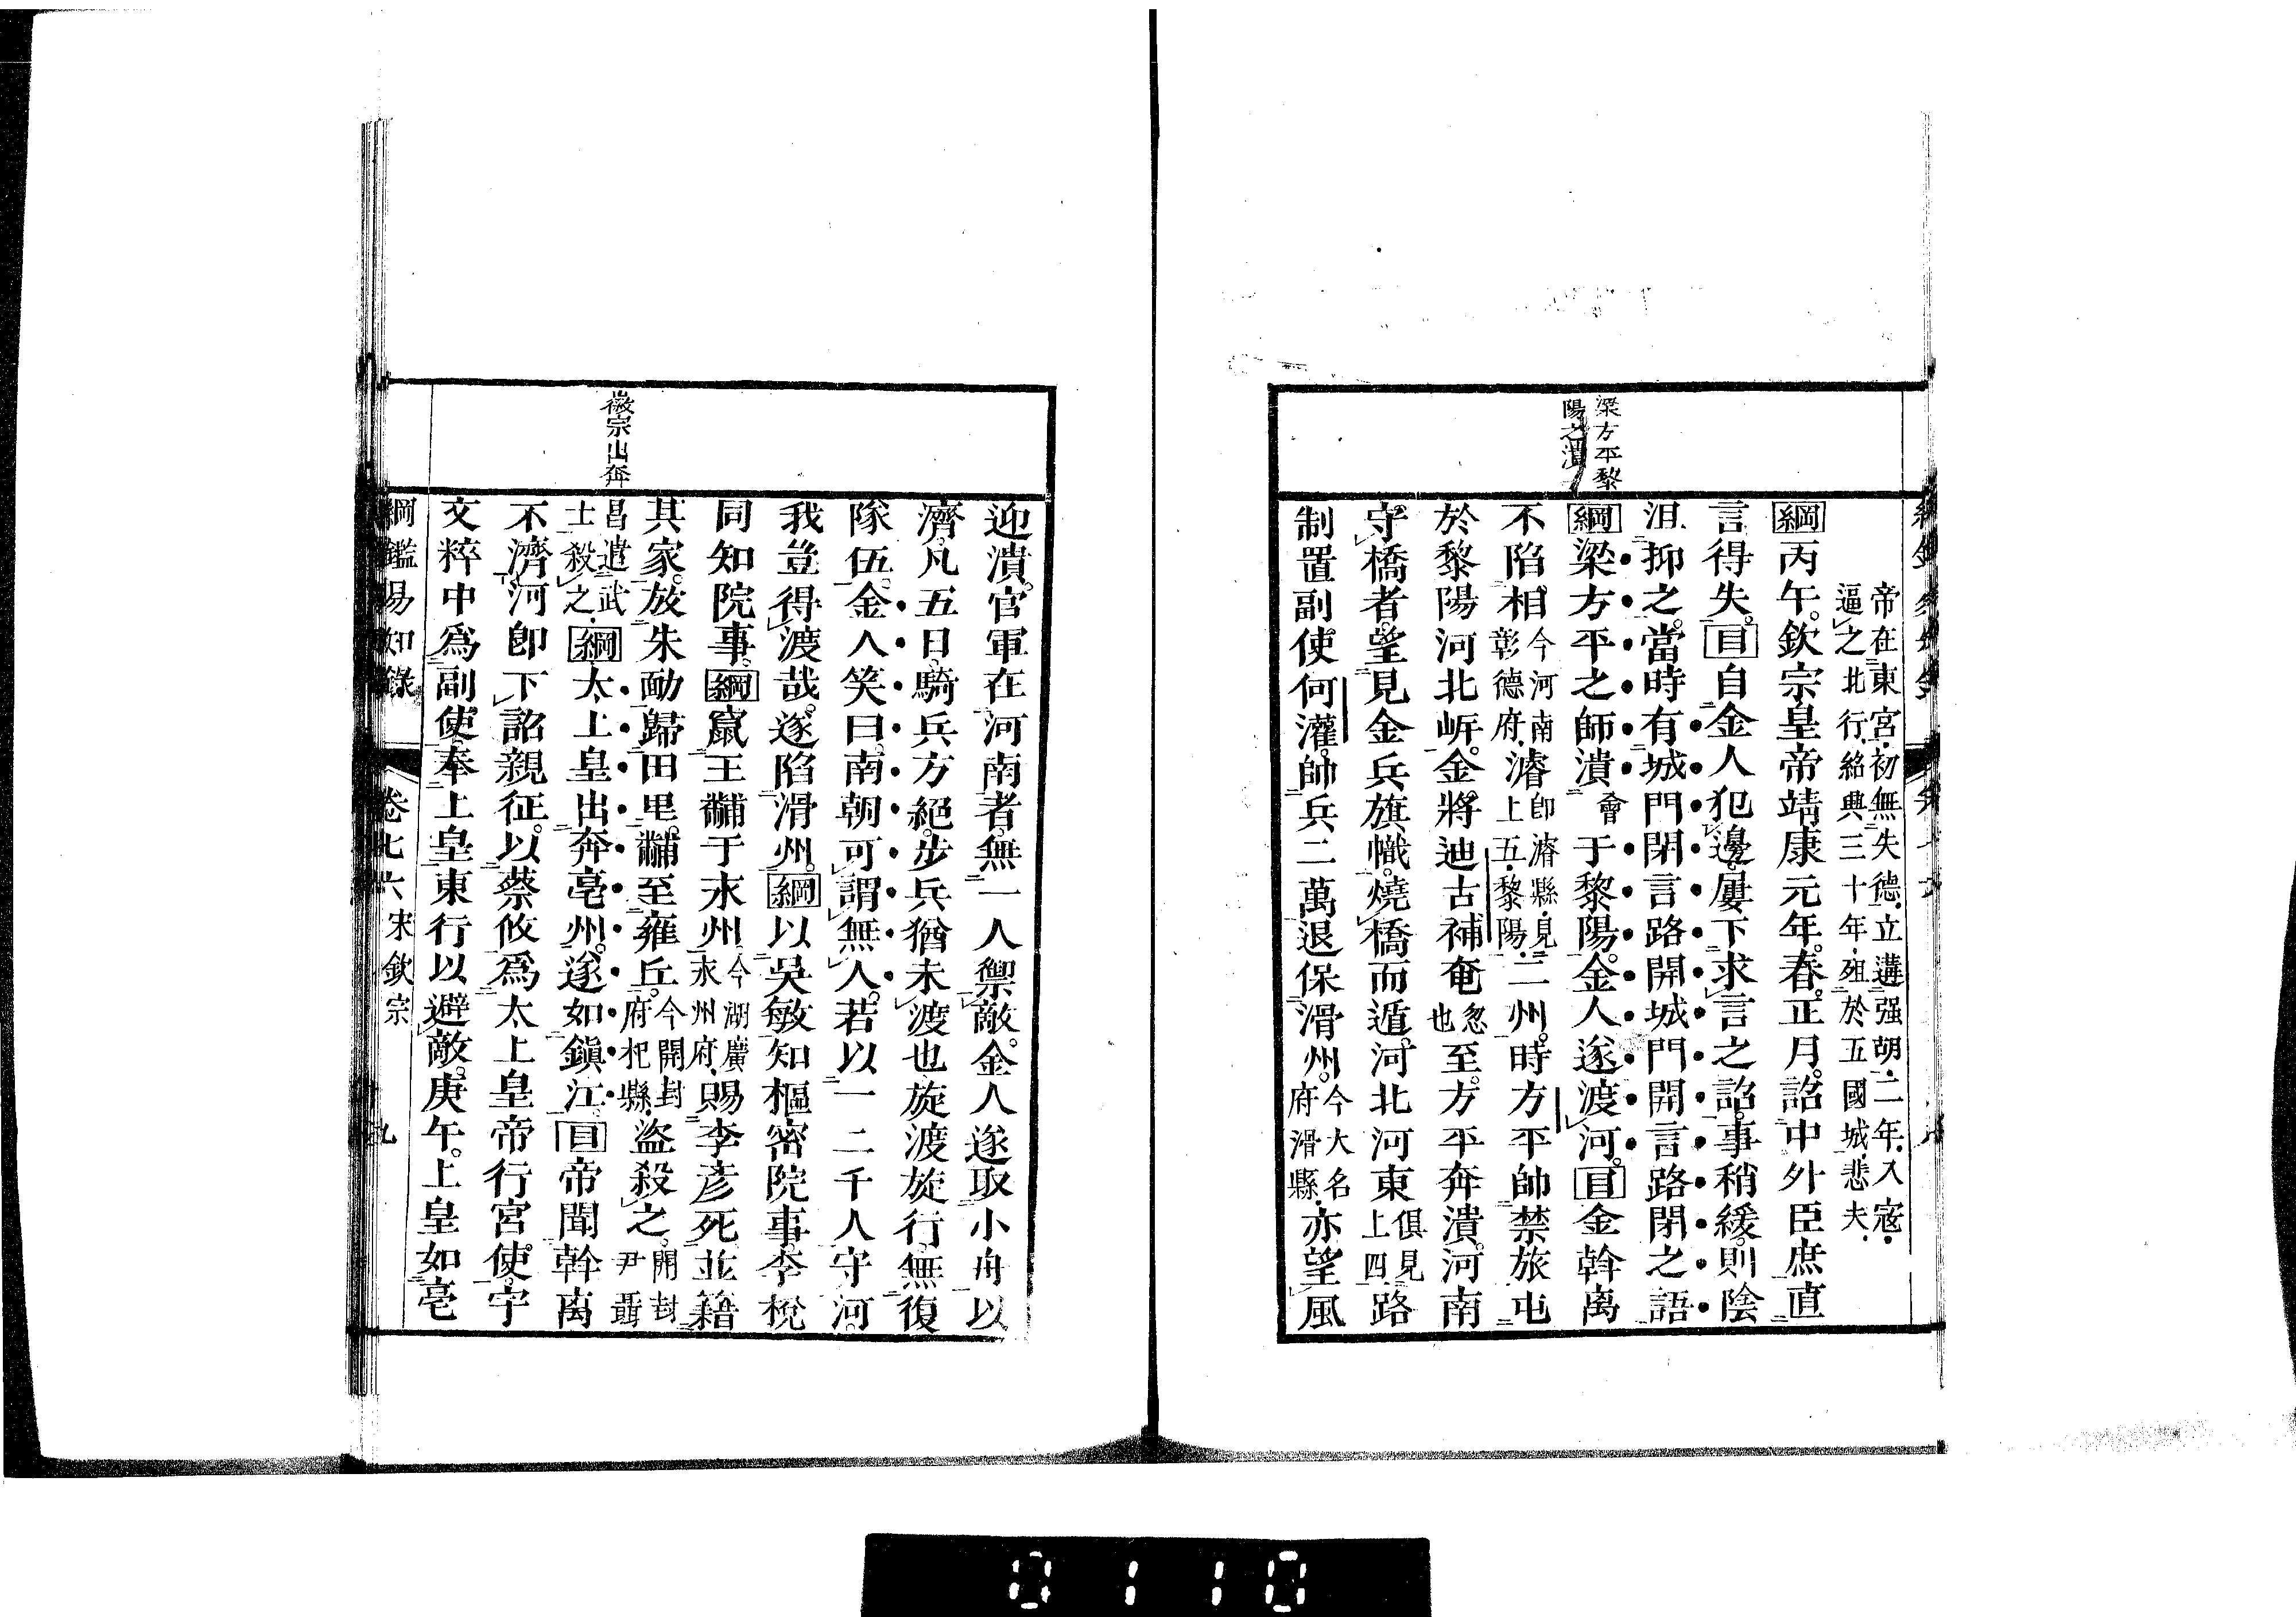 梁方平黎
陽之潰
帝在東宮初無失德立遘强胡二年入寇
逼之北行紹興三十年殂於五國城悲夫
綱丙午欽宗皇帝靖康元年春正月詔中外臣庶直
言得失目自金人犯邊屢下求言之詔事稍緩則陰
沮抑之當時有城門閉言路開城門開言路閉之語
綱梁方平之師潰會于黎陽金人遂渡河目金斡离
不陷相今河南彰德府濬卽濬縣見上五黎陽二州時方平帥禁旅屯
於黎陽河北岍金將迪古補奄忽也至方平奔潰河南
守橋者望見金兵旗幟燒橋而遁河北河東俱見上四路
制置副使何灌帥兵二萬退保滑州今大名府滑縣亦望風
徽宗出奔
迎潰官軍在河南者無一人禦敵金人遂取小舟以
濟凡五日騎兵方絕步兵猶未渡也旋渡旋行無復
隊伍金人笑曰南朝可謂無人若以一二千人守河
我豈得渡哉遂陷滑州綱以吳敏知樞密院事李梲
同知院事綱竄王黼于永州今湖廣永州府賜李彥死並籍
其家放朱勔歸田里黼至雍丘今開封府杞縣盜殺之開封尹聶
昌遣武士殺之綱太上皇出奔亳州遂如鎭江目帝聞斡离
不濟河卽下詔親征以蔡攸爲太上皇帝行宮使宇
文粹中爲副使奉上皇東行以避敵庚午上皇如亳
綱鑑易知錄 卷七六 宋欽宗 九